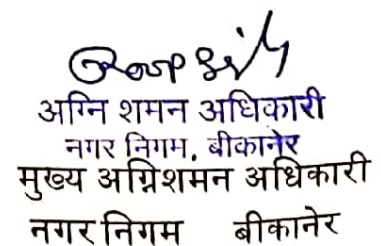 अग्नि शमन अधिकारी
नगर निगम, बीकानेर
मुख्य अग्निशमन अधिकारी
नगर निगम बीकानेर